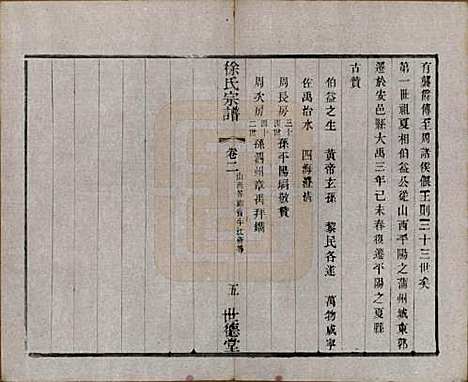 有襲爵傳至周諸侯偃王則三十三世矣
第一世祖夏相伯益公從山西平陽之蒲州城東郭
遷於安邑縣大禹三年己未春復遷平陽之夏縣
古贊
伯益之生 黃帝玄孫 黎民各遂 萬物咸寧
佐禹治水 四海澄清
周長房三十四世孫平陽塥敬贊
周次房四十二世孫泗州章禹拜讚
徐氏宗譜
卷二
五
世德堂